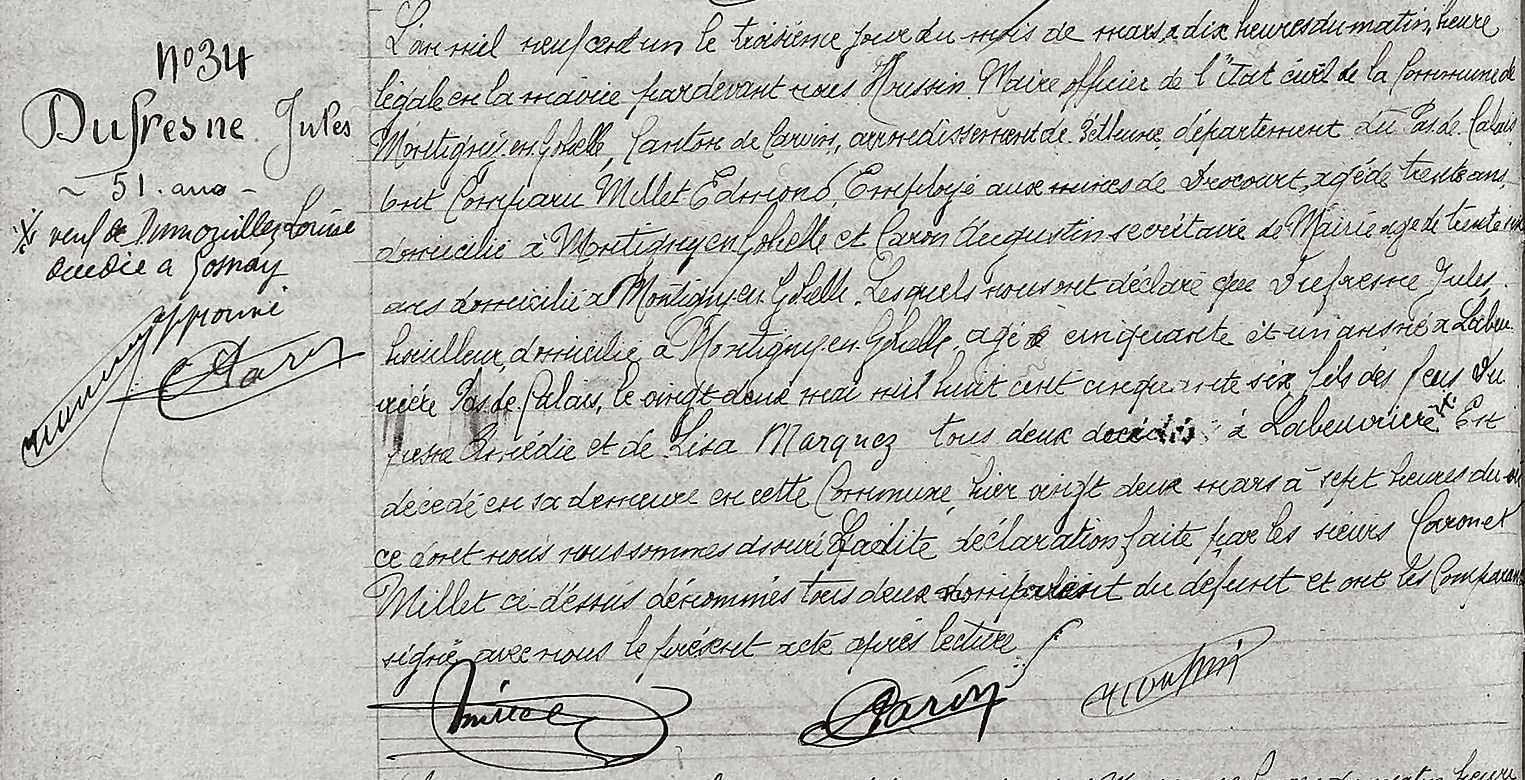 N° 34
Dufresne Jules
51 ans
veuf de Louise
décédée a Gosnay
approuvé
Caron
L'an mil neuf cent un le troisième jour du mois de mars a dix heures du matin, heure
légale en la mairie pardevant nous Houssin Maire officier de l'Etat civil de la Commune de
Montigny-en-Gohelle, Canton de Carvin, arrondissement de Béthune département du Pas de Calais
Ont Comparu Millet Edmond, Employé aux mines de Drocourt, agé de trente ans,
domicilié à Montigny en Gohelle et Caron Augustin secrétaire de Mairie agé de trente
ans domicilié a Montigny en Gohelle. Lesquels nous ont déclaré que Dufresne Jules
houilleur, domicilié a Montigny-en-Gohelle, agé de cinquante et un ans né a Labeu
vrière Pas de Calais, le vingt deux mai mil huit cent cinquante six fils des feus Du
fresne et de Lisa Marquez tous deux décédés à Labeuvrière Est
décédé en sa demeure en cette Commune, hier vingt deux mars à sept heures du
ce dont nous nous sommes assuré Ladite déclaration faite par les sieurs Caron et
Millet ci-dessus dénommés tous deux du défunt et ont les Comparant
signé avec nous le présent acte après lecture
Millet Caron Houssin